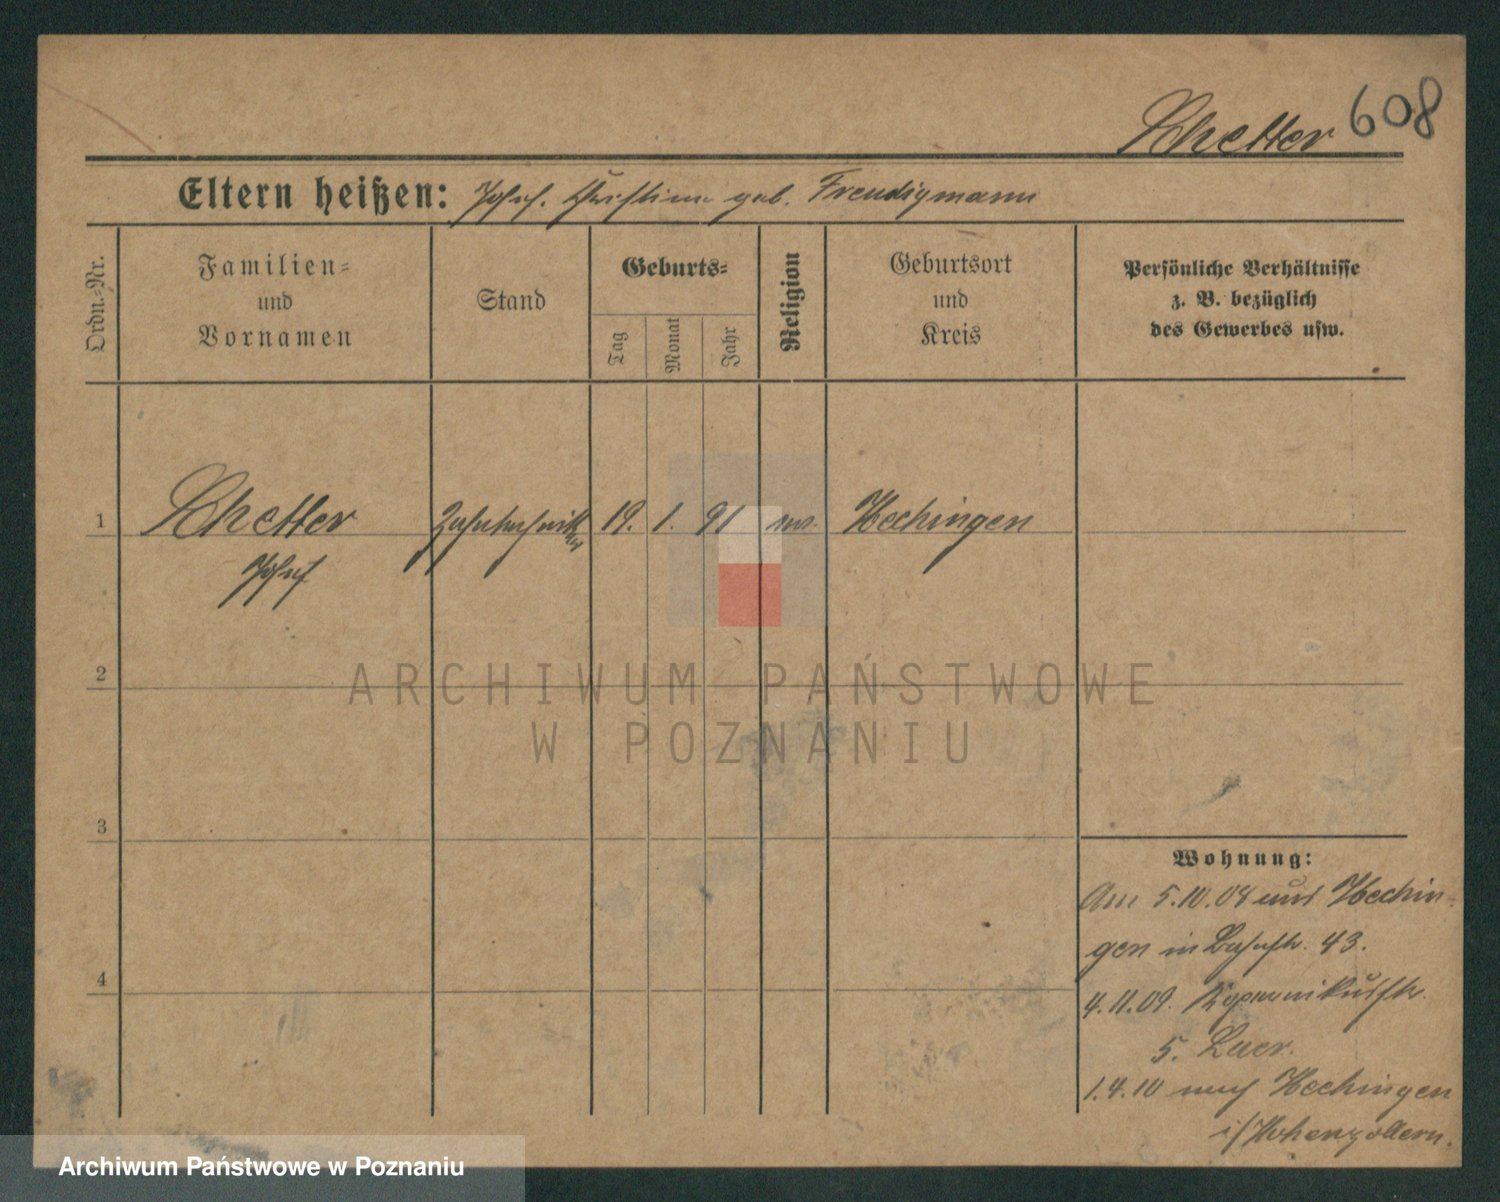 608
Eltern heißen: Josef. Christine geb. Freudigmann
Ordn.-Nr.
Familien-
und
Vornamen
Stand
Geburts-
Tag
Monat
Jahr
Religion
Geburtsort
und
Kreis
Persönliche Verhältnisse
z. B. bezüglich
des Gewerbes usw.
1
19. 1. 91
Hechingen
Josef
2
ARCHIWUM PAŃSTWOWE
W POZNANIU
3
Wohnung:
Am 5.10.08 aus Hechin-
gen in 43.
4
4.11.09. Kopernikusstr.
5.
1.4.10 nach Hechingen
i/Hohenzollern.
Archiwum Państwowe w Poznaniu